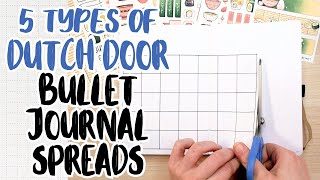 5 TYPES OF
DUTCH DOOR
BULLET
JOURNAL
SPREADS